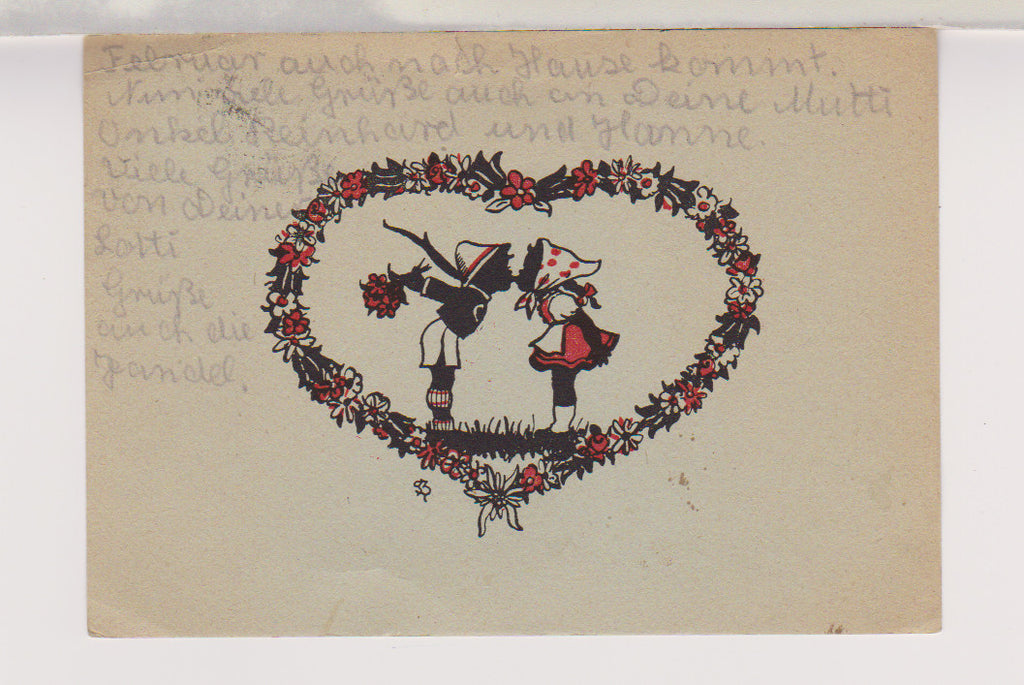 Februar auch nach Hause kommt.
Nun viele Grüße auch an Deine Mutti
Onkel Reinhard und Hanne.
Viele Grüße
von Deine
Lotti
Grüße
auch die